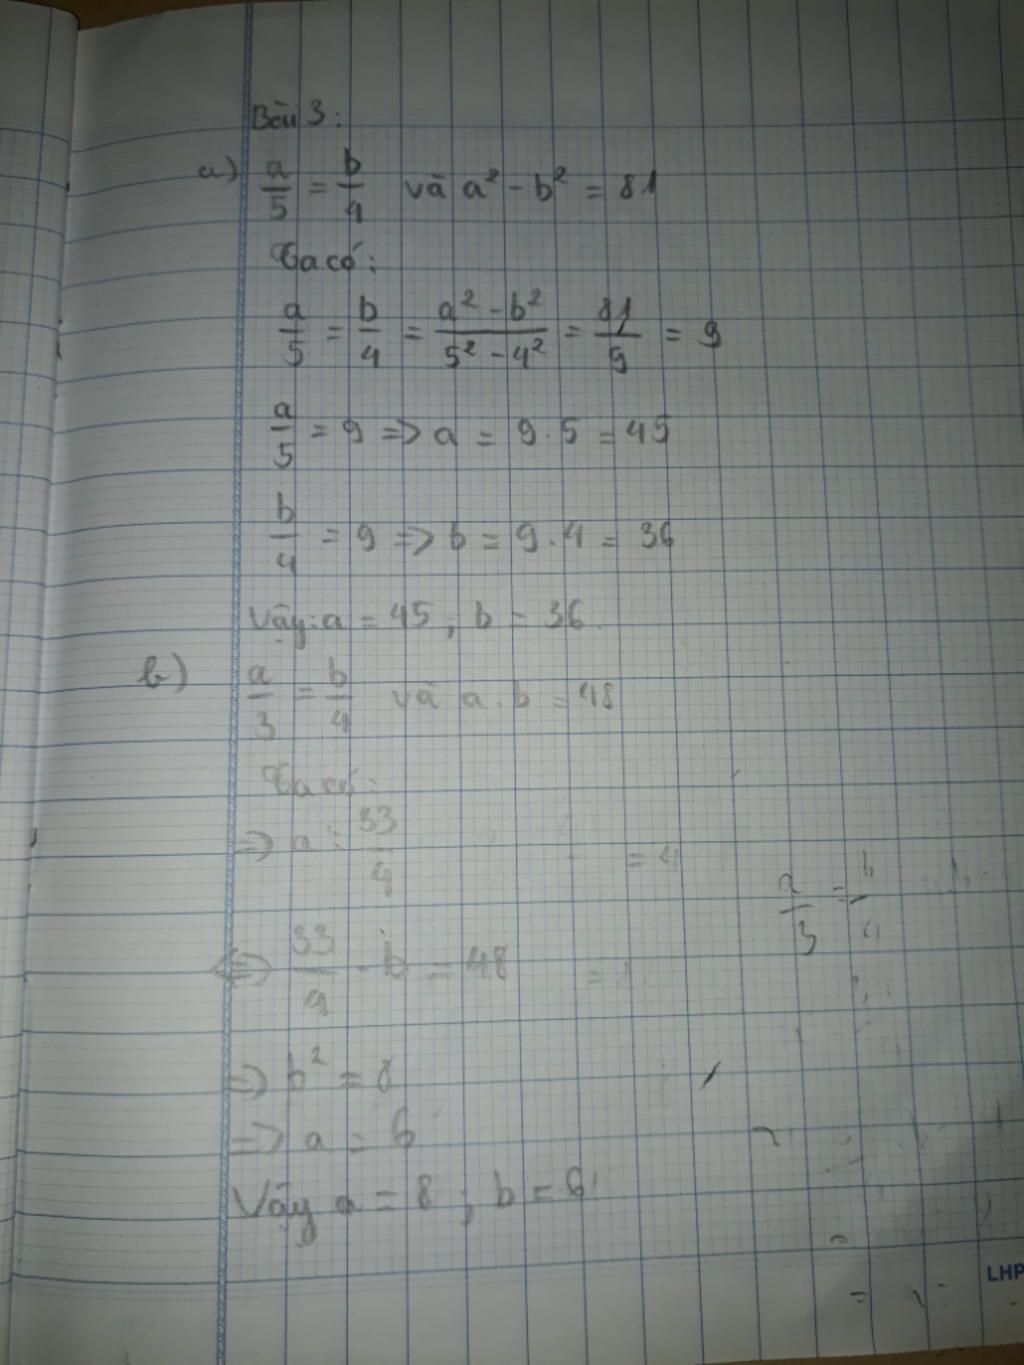 Bài 3:
a) a/5 = b/4 và a² - b² = 81
Ta có:
a/5 = b/4 = (a² - b²)/(5² - 4²) = 81/9 = 9
a/5 = 9 => a = 9.5 = 45
b/4 = 9 => b = 9.4 = 36
Vậy: a = 45; b = 36.
b) a/3 = b/4 và a.b = 48
Ta có:
=> a = 33/4
= 4
a/3 = b/4
<=> 33/4 . b = 48
=> b² = 8
=> a = 6
Vậy a = 8; b = 6
LHP